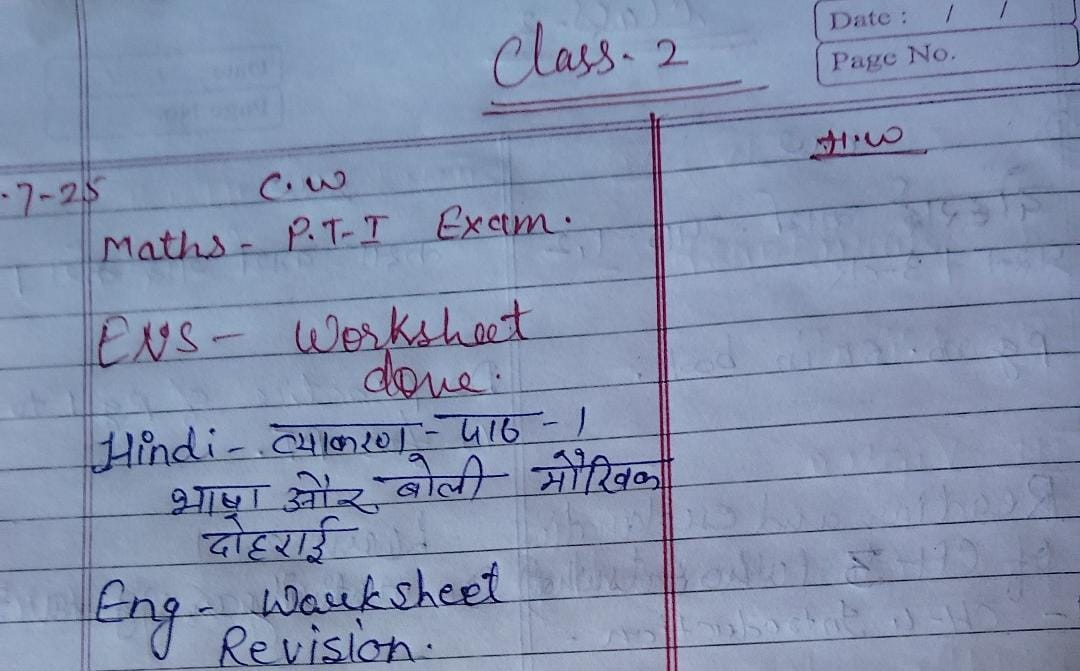 Class. 2
Date : / /
Page No.
.7-25 C.W
H.W
Maths - P.T-I Exam.
EVS - Worksheet
done.
Hindi - व्याकरण - पाठ - 1
भाषा और बोली मौखिक
दोहराई
Eng - Wauksheet
Revision.